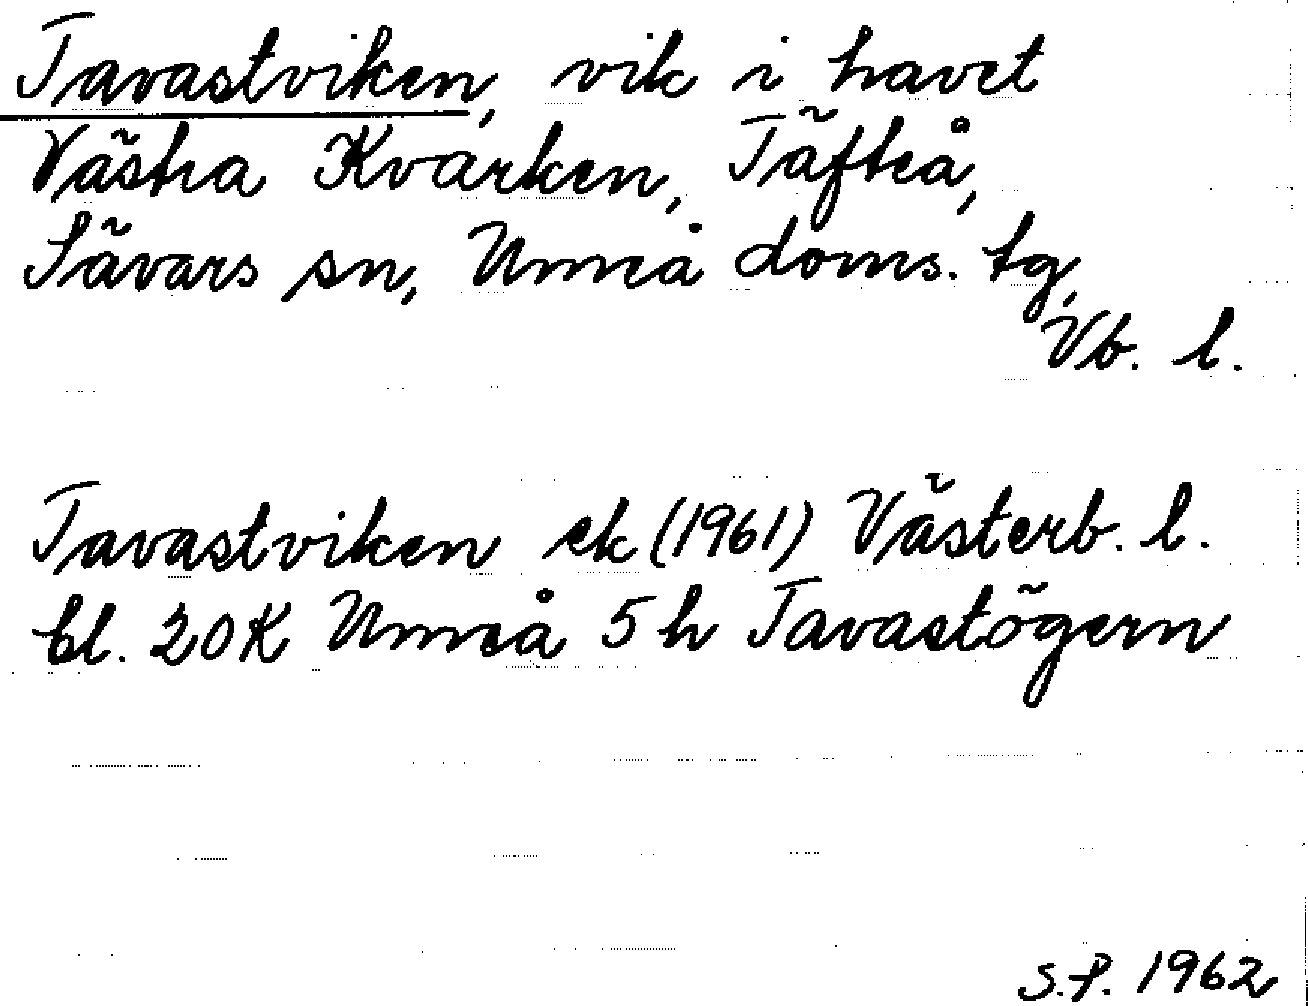 Tavastviken, vik i havet
Västra Kvarken, Täfteå,
Sävars sn, Umeå doms. tg,
Vb. l.
Tavastviken ek (1961) Västerb. l.
bl. 20K Umeå 5h Tavastögern
S.P. 1962